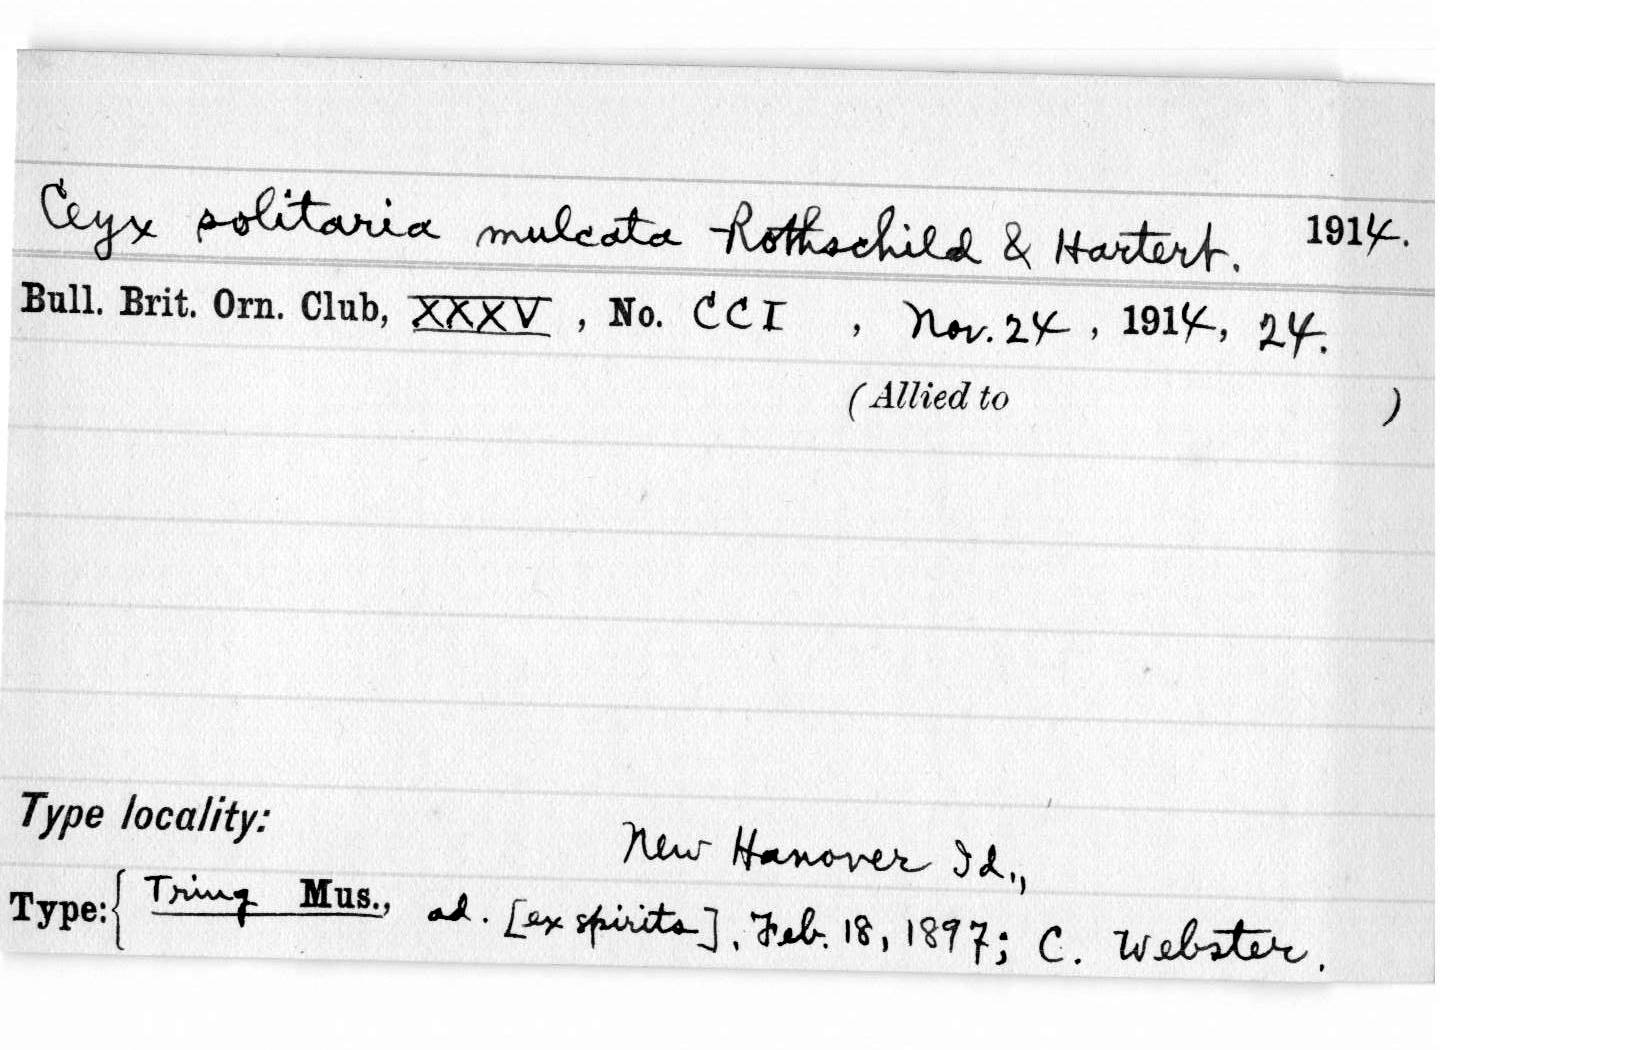 Ceyx solitaria mulcata Rothschild & Hartert. 1914.
Bull. Brit. Orn. Club, XXXV, No. CCI, Nov. 24, 1914, 24.
(Allied to )
Type locality:
New Hanover Id.,
Type: { Tring Mus., ad. [ex spirits], Feb. 18, 1897; C. Webster.